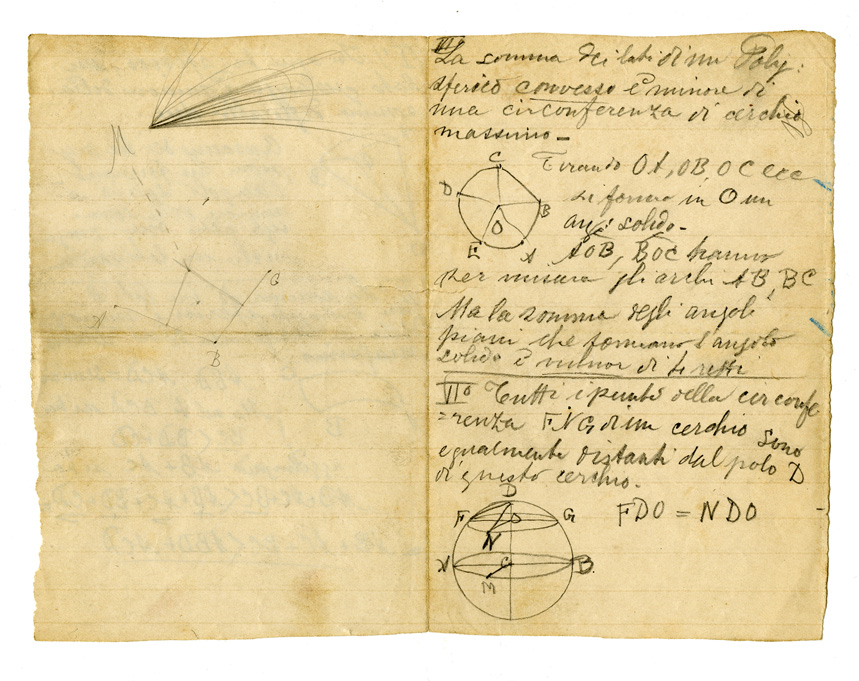 M
C
A
B
VIº
La somma dei lati di un Poly:
sferico convesso è minore di
una circonferenza di cerchio
massimo_
C
D
B
O
E
A
Tirando OA, OB, OC ecc
si forma in O un
ang: solido_
AOB, BOC hanno
per misura gli archi AB, BC
Ma la somma degli angoli
piani che formano l'angolo
solido è minor di 4 retti
VIIº Tutti i punti della circonfe
=renza FNG di un cerchio sono
egualmente distanti dal polo D
di questo cerchio.
D
F
O
G
N
A
C
B.
M
FDO = NDO